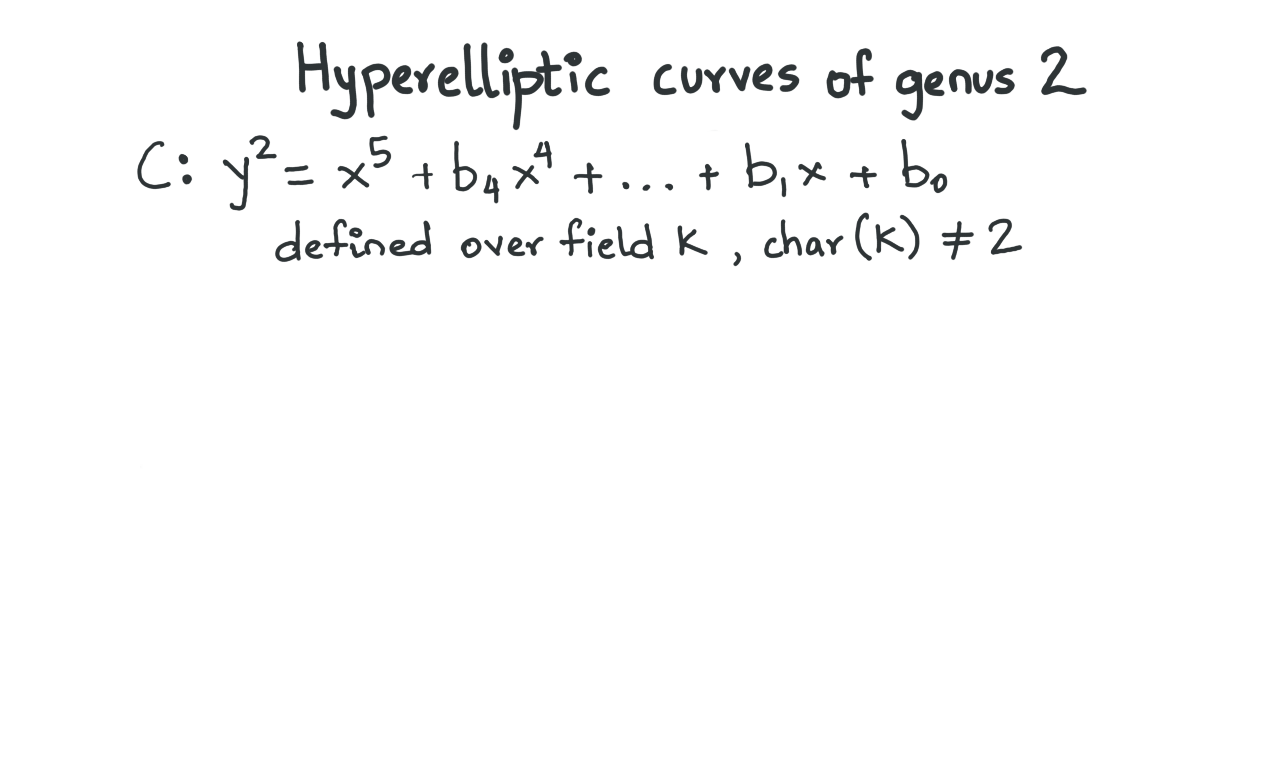 Hyperelliptic curves of genus 2
C: y² = x⁵ + b₄x⁴ + ... + b₁x + b₀
defined over field K, char(K) ≠ 2